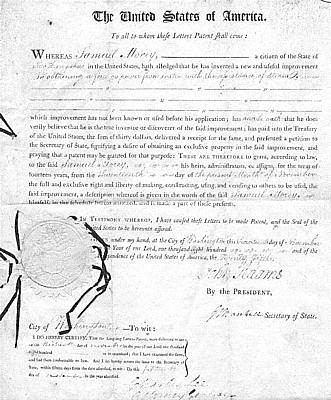 The United States of America.
To all to whom these Letters Patent shall come:
WHEREAS Samuel Morey, a citizen of the State of
New Hampshire in the United States, hath alledged that he has invented a new and useful improvement
in obtaining a force or power from water with the assistance of steam
which improvement has not been known or used before his application; has made oath that he does
verily believe that he is the true inventor or discoverer of the said improvement; has paid into the Treasury
of the United States, the sum of thirty dollars, delivered a receipt for the same, and presented a petition to
the Secretary of State, signifying a desire of obtaining an exclusive property in the said improvement, and
praying that a patent may be granted for that purpose: THESE ARE THEREFORE to grant, according to law,
to the said Samuel Morey, his heirs, administrators, or assigns, for the term of
fourteen years, from the day of the present Month of November
the full and exclusive right and liberty of making, constructing, using, and vending to others to be used, the
said improvement, a description whereof is given in the words of the said Samuel Morey
himself, in the schedule hereto annexed, and is made a part of these presents.
IN TESTIMONY WHEREOF, I have caused these Letters to be made Patent, and the Seal of the
United States to be hereunto affixed.
under my hand, at the City of Washington this day of November
Year of our Lord, one thousand eight hundred
dependence of the United States of America, the Twenty fifth.
John Adams
By the PRESIDENT,
J Marshall Secretary of State.
City of Washington To wit:
I DO HEREBY CERTIFY, That the foregoing Letters Patent, were delivered to me
day of November in the year of our Lord one thousand
eight hundred to be examined; that I have examined the same,
and find them conformable to law. And I do hereby return the same to the Secretary of
State, within fifteen days from the date aforesaid, to wit: On this
day of November in the year aforesaid.
Charles Lee
Attorney General